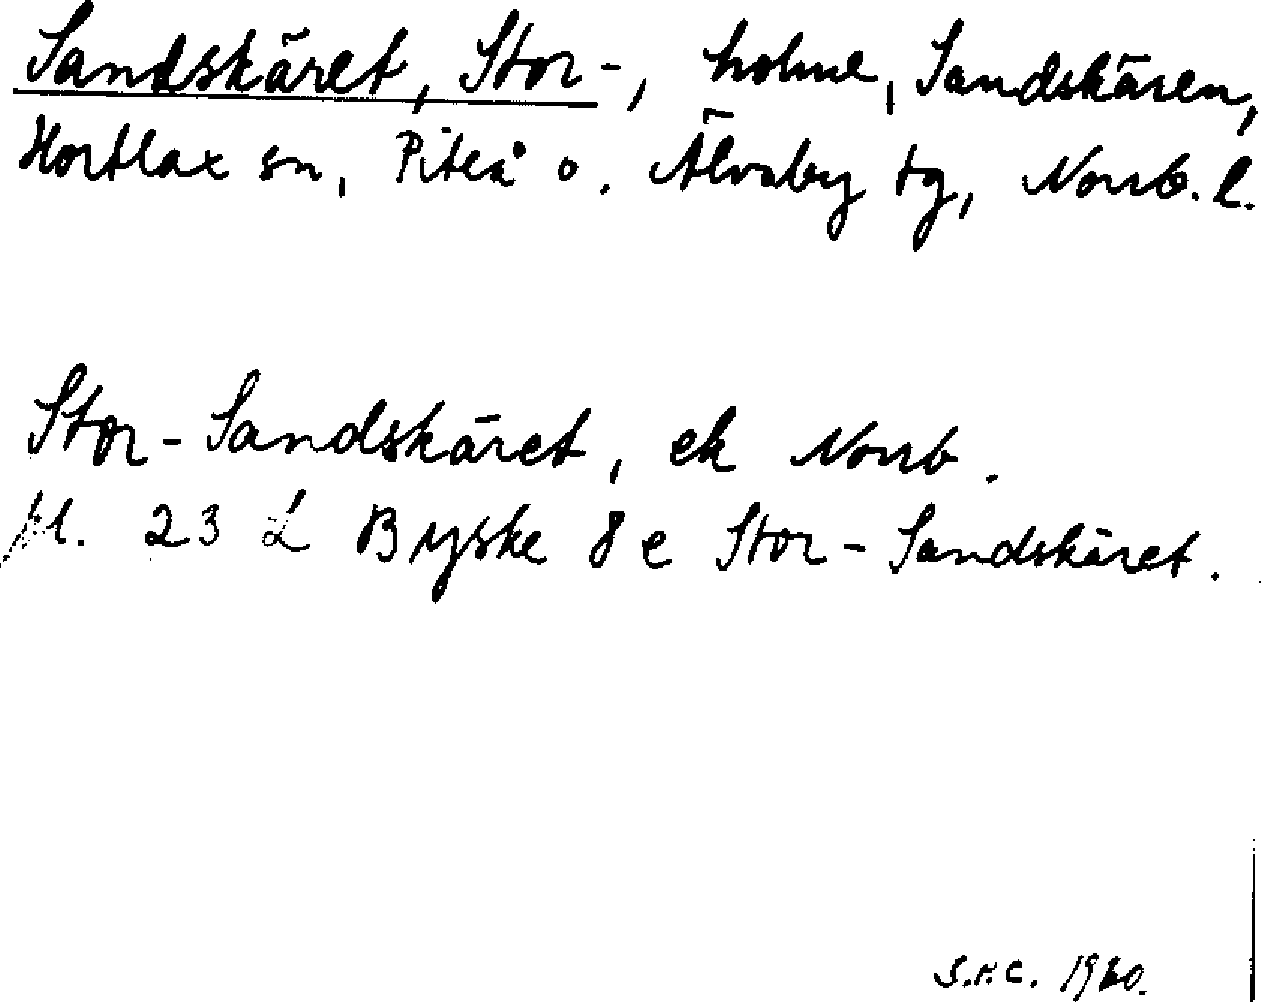 Sandskäret, Stor-, holme, Sandskären,
Hortlax sn, Piteå o. Älvsby tg, Norrb. l.
Stor-Sandskäret, ek Norrb.
bl. 23 L Byske 8 e Stor-Sandskäret.
1960.